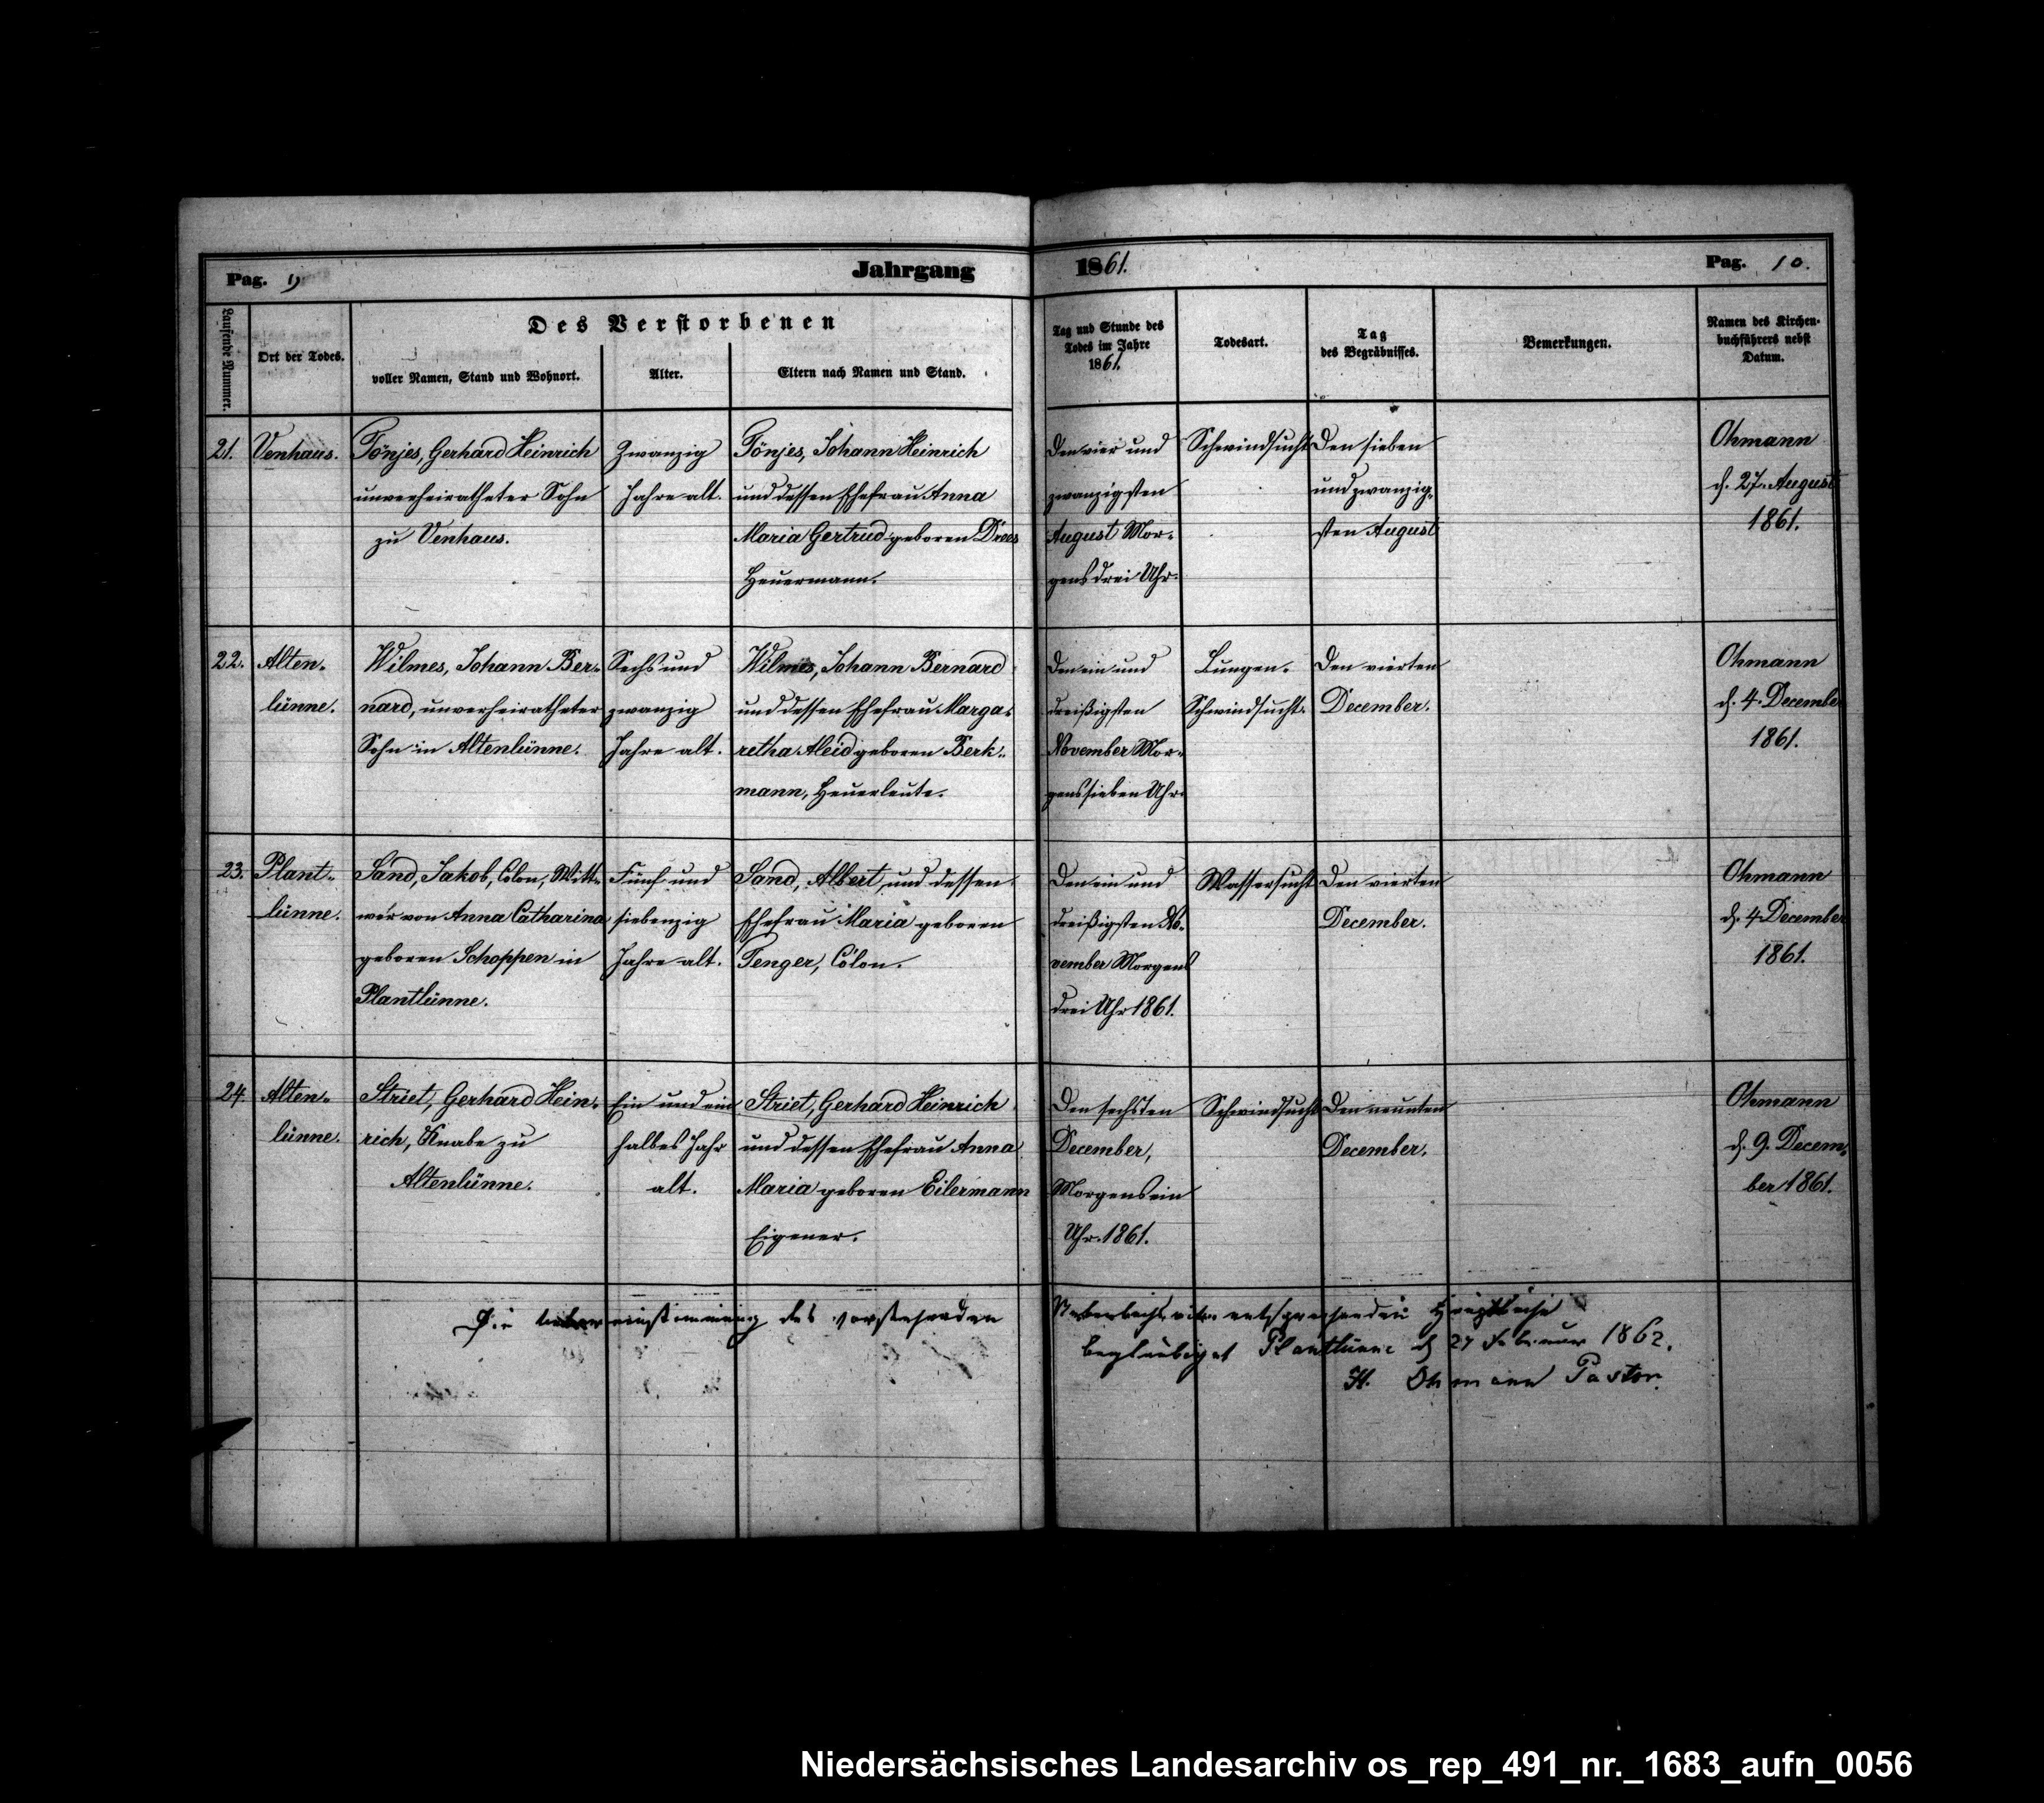 Pag. 9
Jahrgang
1861.
Pag. 10.
Laufende Nummer.
Ort der Todes.
Des Verstorbenen
voller Namen, Stand und Wohnort.
Alter.
Eltern nach Namen und Stand.
Tag und Stunde des
Todes im Jahre
1861.
Todesart.
Tag
des Begräbnisses.
Bemerkungen.
Namen des Kirchen-
buchführers nebst
Datum.
21.
Venhaus.
Tönjes, Gerhard Heinrich
unverheiratheter Sohn
zu Venhaus.
Zwanzig
Jahre alt.
Tönjes, Johann Heinrich
und dessen Ehefrau Anna
Maria Gertrud geboren Drees
Heuermann.
Den vier und
zwanzigsten
August Mor-
gens drei Uhr.
Schwindsucht
Den sieben
und zwanzig-
sten August
Ohmann
d. 27. August
1861.
22.
Alten-
lünne.
Wilmes, Johann Ber-
nard, unverheiratheter
Sohn in Altenlünne.
Sechs und
zwanzig
Jahre alt.
Wilmes, Johann Bernard
und dessen Ehefrau Marga-
retha Aleid geboren Berk-
mann, Heuerleute.
Den ein und
dreißigsten
November Mor-
gens sieben Uhr.
Lungen-
Schwindsucht.
Den vierten
December.
Ohmann
d. 4. December
1861.
23.
Plant-
lünne.
Sand, Jakob, Colon, Witt-
wer von Anna Catharina
geboren Schoppen in
Plantlünne.
Fünf und
siebenzig
Jahre alt.
Sand, Albert, und dessen
Ehefrau Maria geboren
Tenger, Colon.
Den ein und
dreißigsten No-
vember Morgens
drei Uhr 1861.
Wassersucht
Den vierten
December.
Ohmann
d. 4 December
1861.
24.
Alten-
lünne.
Striet, Gerhard Hein-
rich, Knabe zu
Altenlünne.
Ein und ein
halbes Jahr
alt.
Striet, Gerhard Heinrich
und dessen Ehefrau Anna
Maria geboren Eilermann
Eigener.
Den sechsten
December,
Morgens ein
Uhr. 1861.
Schwindsucht
Den neunten
December.
Ohmann
d. 9. Decem-
ber 1861.
Die Uebereinstimmung des vorstehenden
beglaubiget Plantlünne d 27 Februar 1862.
H. Ohmann Pastor.
Niedersächsisches Landesarchiv os_rep_491_nr._1683_aufn_0056